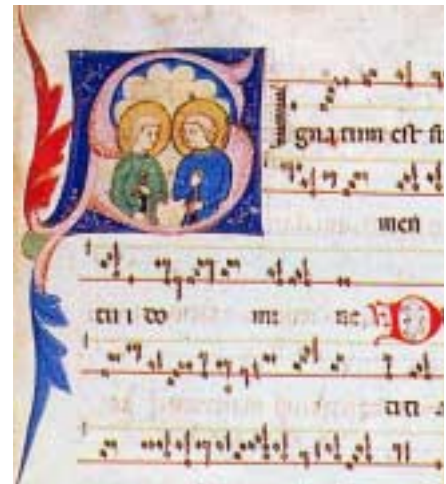 SIgnatum est su
men
tui do mi ne, D